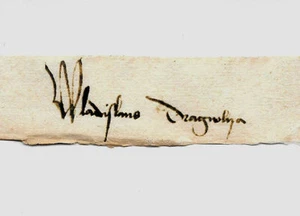 Wladislaus Dragwlya